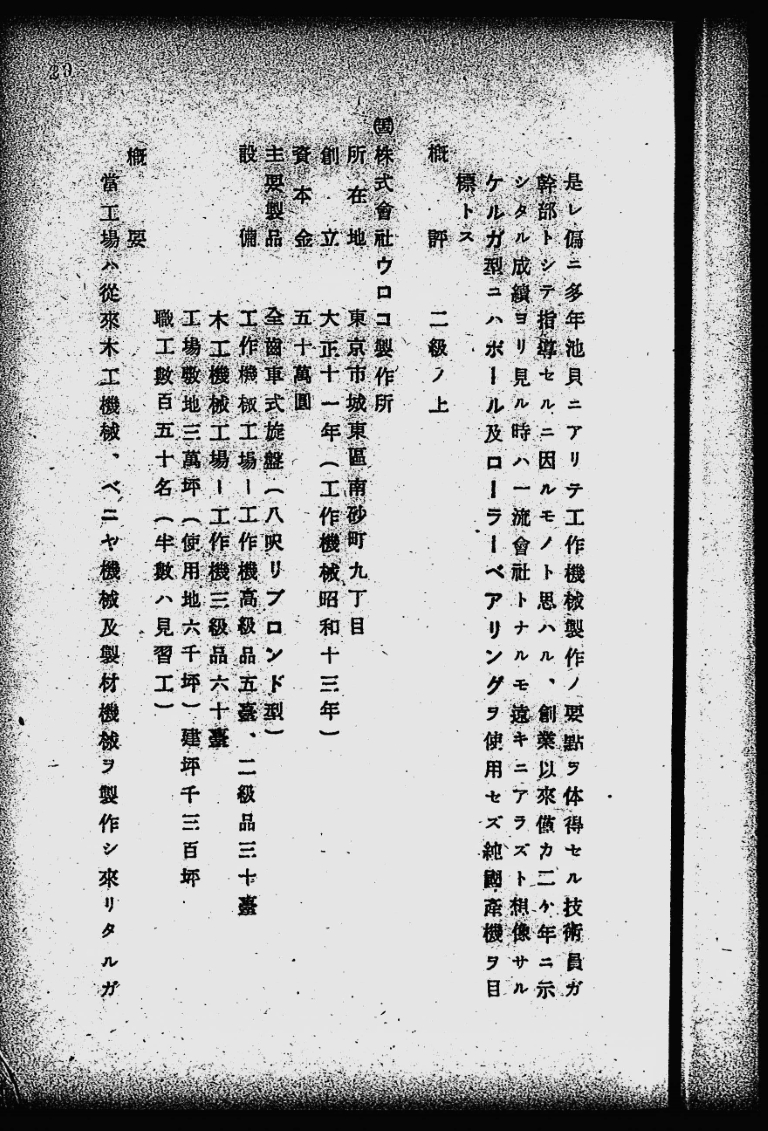 20
是レ偏ニ多年池貝ニアリテ工作機械製作ノ要點ヲ体得セル技術員ガ
幹部トシテ指導セルニ因ルモノト思ハル、創業以來僅カ二ケ年ニ示
シタル成績ヨリ見ル時ハ一流會社トナルモ遠キニアラズト想像サル
ケルガ型ニハボール及ローラーベアリングヲ使用セズ純國產機ヲ目
標トス
概評 二級ノ上
株式會社ウロコ製作所
所在地 東京市城東區南砂町九丁目
創立 大正十一年(工作機械昭和十三年)
資本金 五十萬圓
主要製品 全齒車式旋盤(八呎リブロンド型)
設備 工作機械工場ー工作機高級品五臺、二級品三十臺
木工機械工場ー工作機三級品六十臺
工場敷地三萬坪(使用地六千坪)建坪千三百坪
職工數百五十名(半數ハ見習工)
概要
當工場ハ從來木工機械、ベニヤ機械及製材機械ヲ製作シ來リタルガ